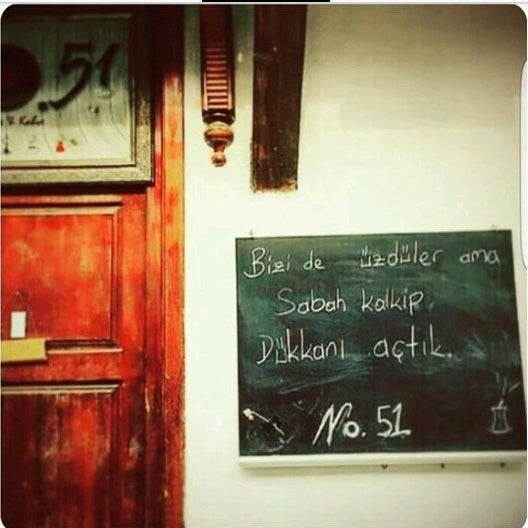 o.51
Bizi de üzdüler ama
Sabah kalkip,
Dükkanı açtık.
No. 51